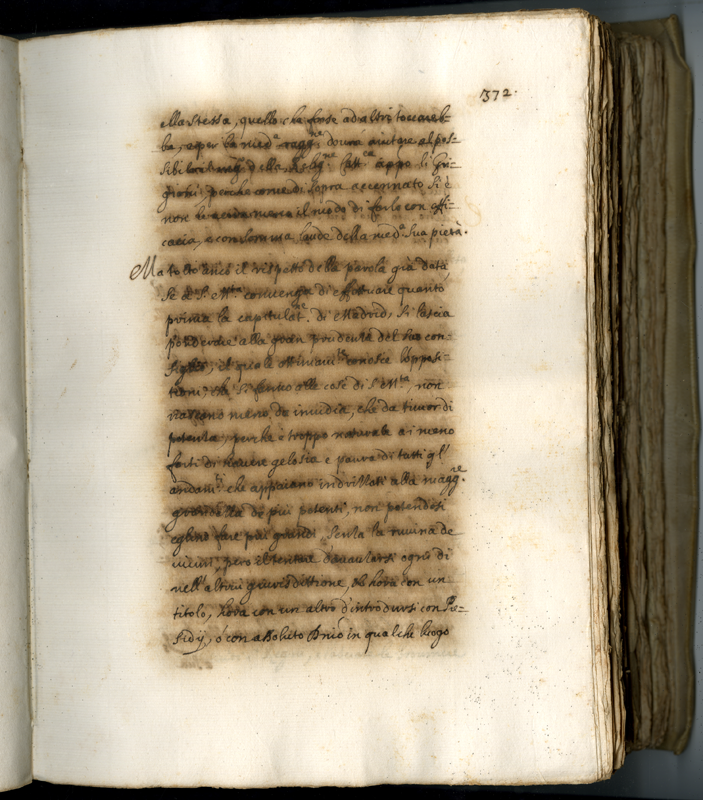 372.
ella stessa, quello che forse ad altri toccareb-
be, e per la med.ª ragg.ne dourà aiutare al pos-
sibile appo li Gri-
gioni, perche come di sopra accennato si è
non le manca il modo di farlo con effi-
cacia, e con somma laude della med.ª sua pietà.
Ma tolto anco il rispetto della parola già data,
se à S. M.tà conuenga di effettuare quanto
prima la capitulat.ne di Madrid, si lascia
ponderare alla gran prudenza del suo con-
siglio, il quale ottimam.te conosce l'opposi-
tioni, che si fanno alle cose di S. M.tà, non
nascono meno da inuidia, che da timor di
potenza, perche è troppo naturale a i meno
forti di riceuere gelosia e paura di tutti gl'
andam.ti che appaiano indrizzati alla magg.re
grandezza de più potenti, non potendosi
eglino fare più grandi senza la ruuina de
uicini, però il tentare d'auanzarsi ogni di
nell'altrui giurisdittione, et hora con un
titolo, hora con un altro d'introdursi con Pre-
sidij, o con assoluto Dnio in qualche luogo